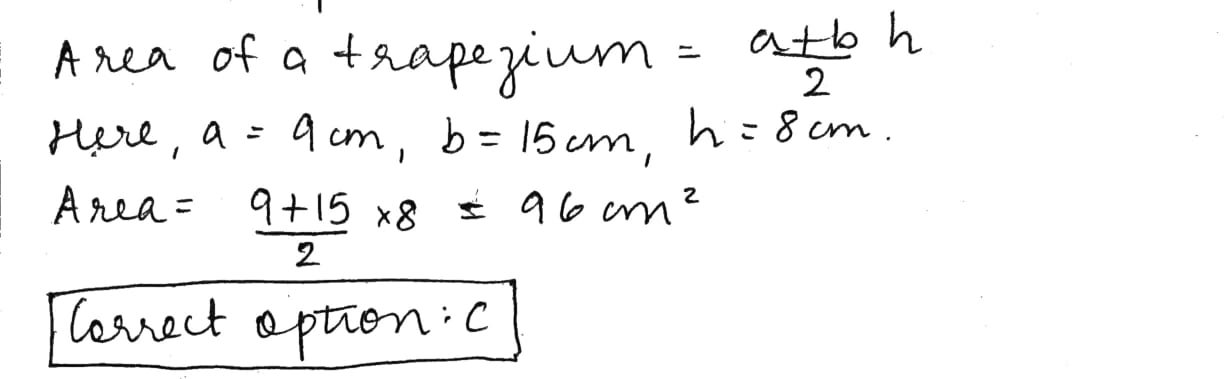 Area of a trapezium = a+b/2 h
Here, a = 9 cm, b = 15 cm, h = 8 cm.
Area = 9+15/2 ×8 = 96 cm²
Correct option: C